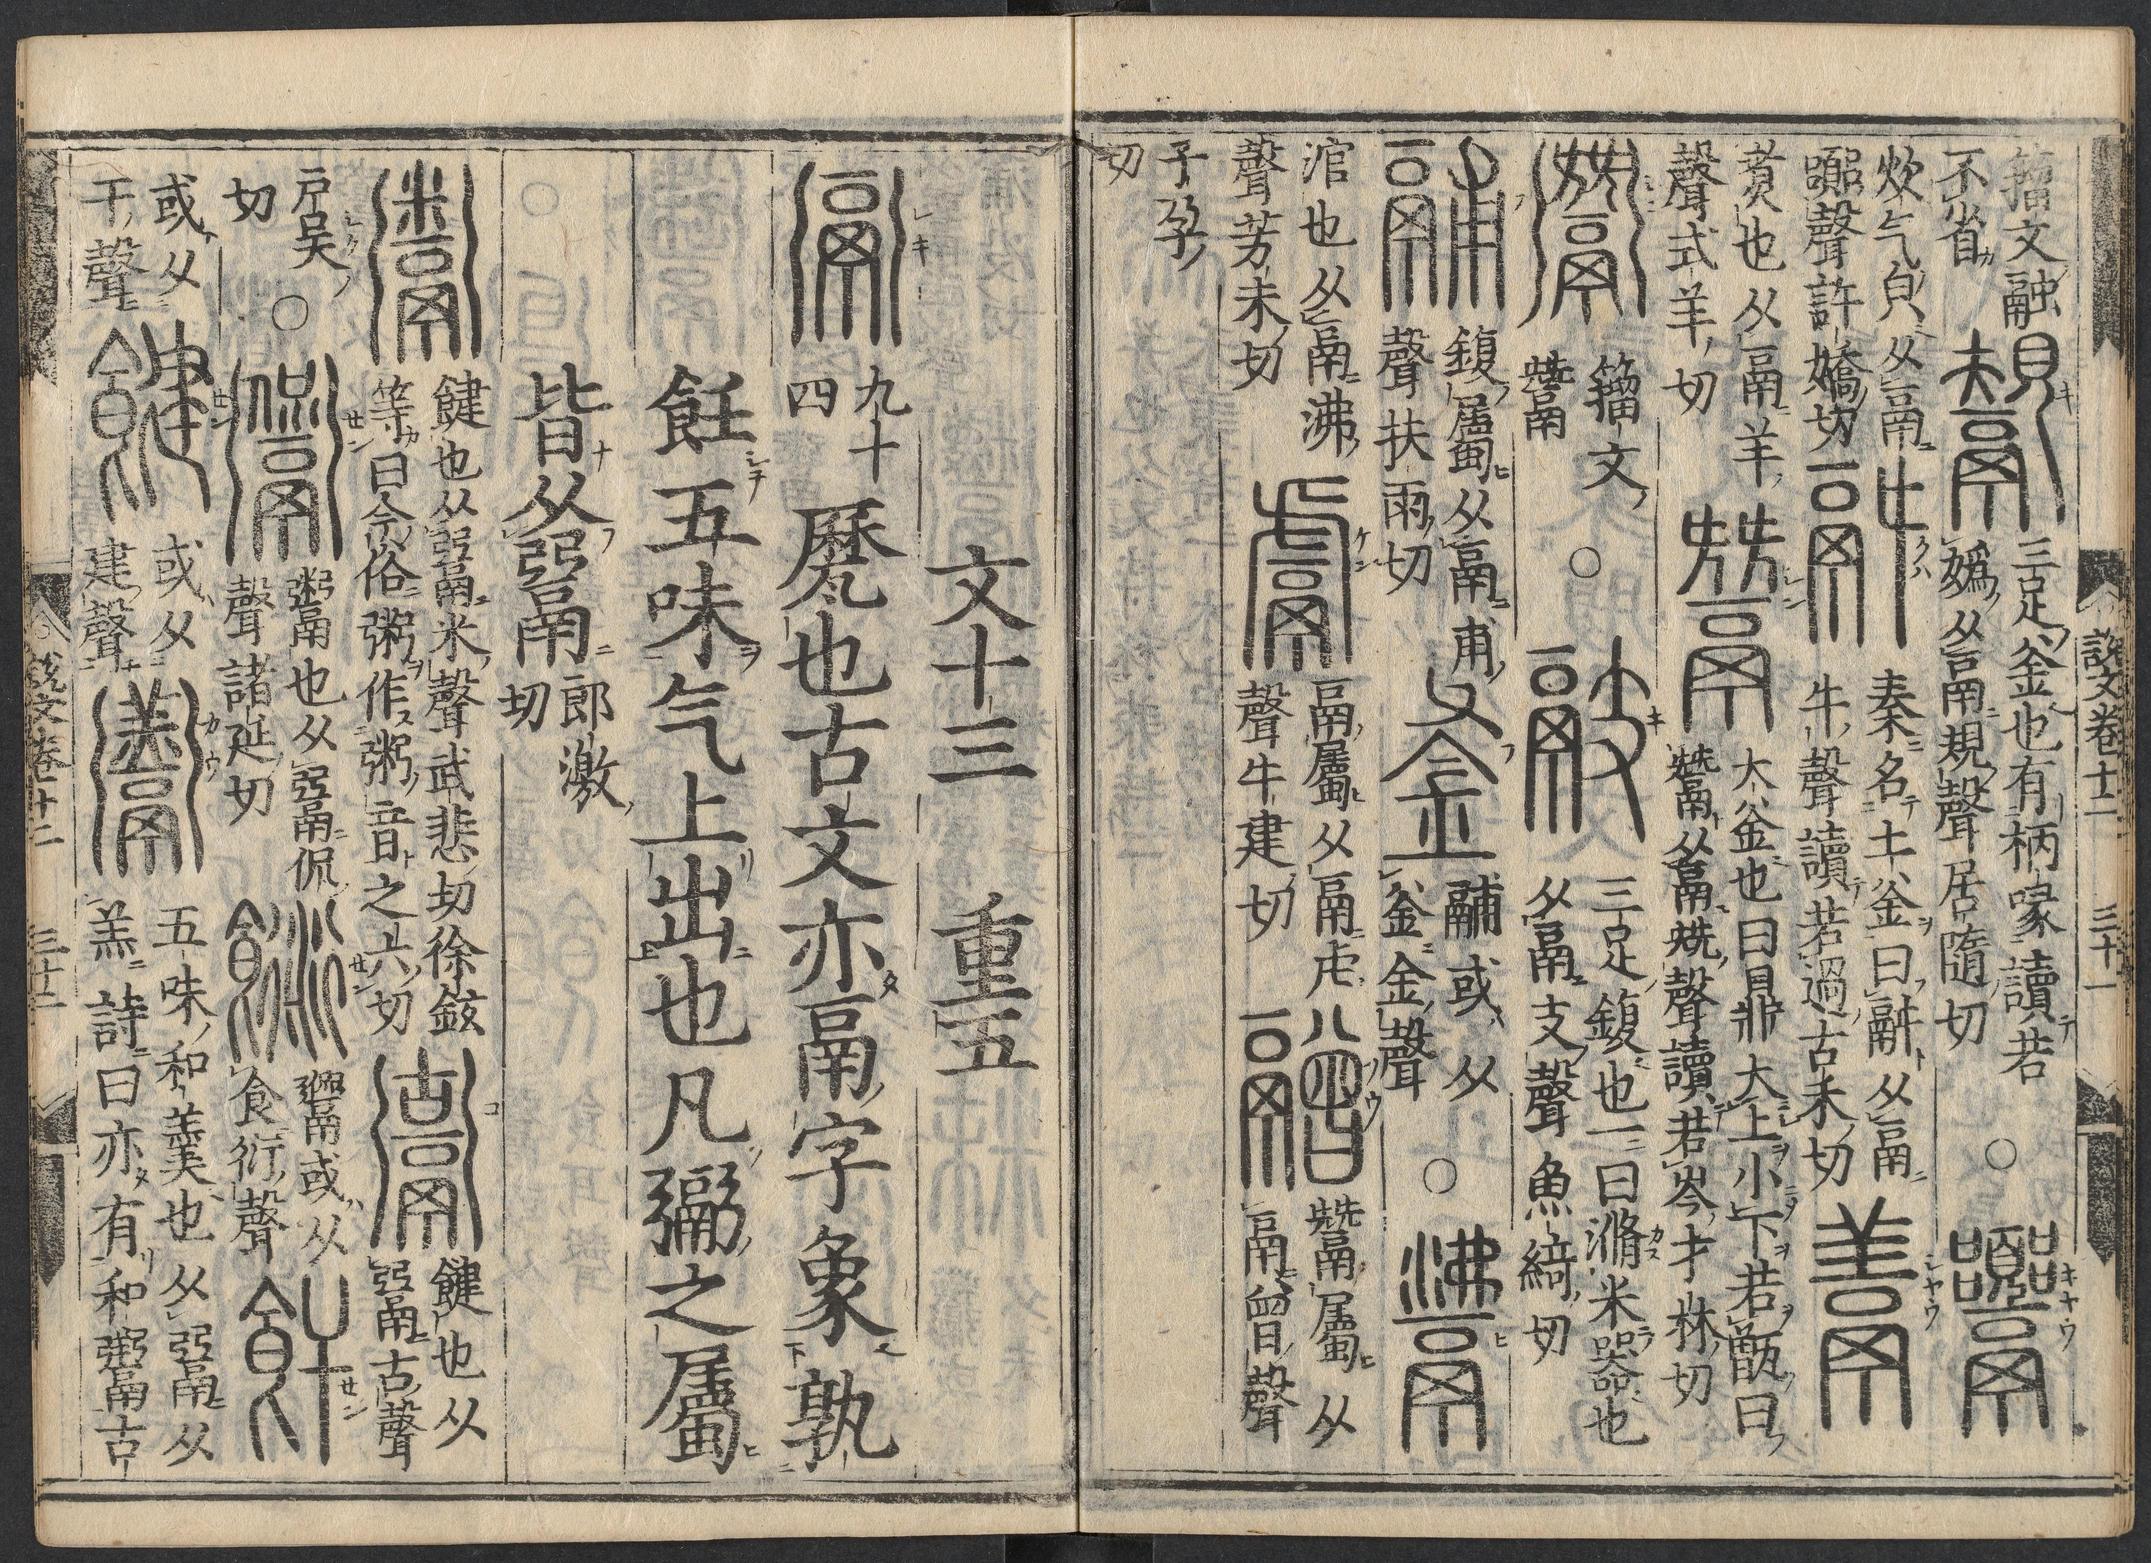 籒文融
不省
三足釜也有柄喙讀若
嬀从鬲規聲居隨切
○
炊气皃从鬲
嚻聲許嬌切
秦名土釜曰𩰫从鬲
牛聲讀若過古禾切
煑也从鬲羊
聲式羊切
大釜也曰鼎大上小下若甑曰
鬵从鬲兓聲讀若岑才林切
籒文
鬵
○
三足鍑也一曰滫米器也
从鬲支聲魚綺切
鍑屬从鬲甫
聲扶雨切
鬴或从
釜金聲
○
涫也从鬲沸
聲芳未切
鬲屬从鬲虍
聲牛建切
鬵屬从
鬲曾聲
子孕
切
文十三　重五
九十
四
𢊁也古文亦鬲字象孰
飪五味气上出也凡彌之屬
皆从䰜
郎激
切
鍵也从䰜米聲武悲切徐鉉
等曰今俗粥作粥音之六切
鍵也从
䰜古聲
戶吴
切
○
鬻也从䰜侃
聲諸延切
𩱨或从
食衍聲
或从
干聲
或从
建聲
五味和羹也从䰜从
羔詩曰亦有和鬻古
說文卷十二　三十一
說文卷十二　三十二